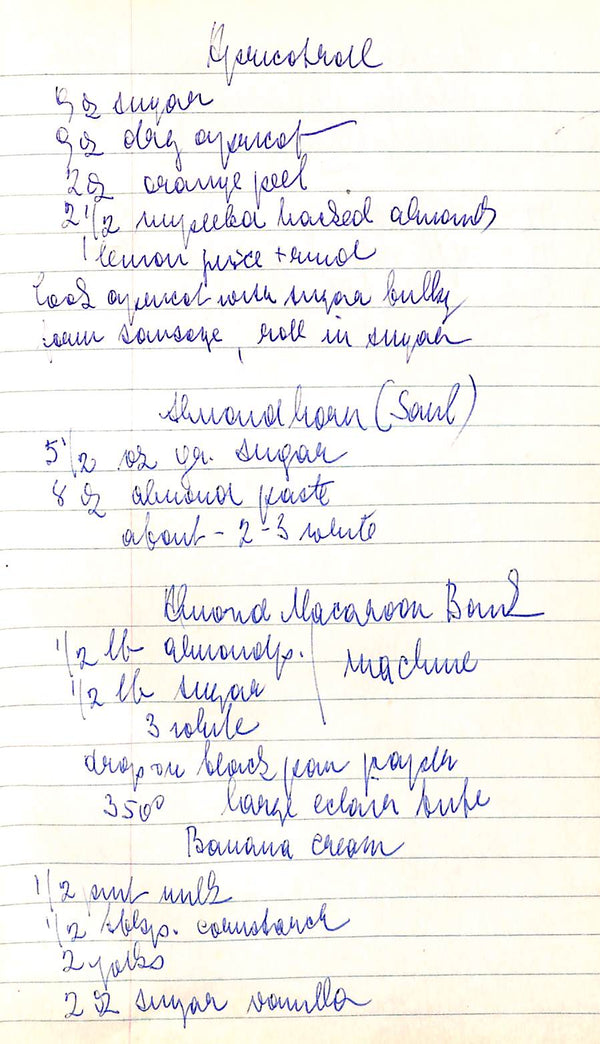 Apricotroll
9 oz sugar
9 oz dry apricot
2 oz orange peel
2 1/2 unpeeled hacked almonds
1 lemon juice + rind
Cook apricot with sugar bulky
form sausage, roll in sugar
Almondhorn (Saul)
5 1/2 oz gr. sugar
8 oz almond paste
about - 2-3 white
Almond Macaroon
1/2 lb almondp.
machine
1/2 lb sugar
3 white
drop on black pan paper
350° large eclair tube
Banana cream
1/2 pint milk
1/2 tblsp. cornstarch
2 yolks
2 oz sugar vanilla